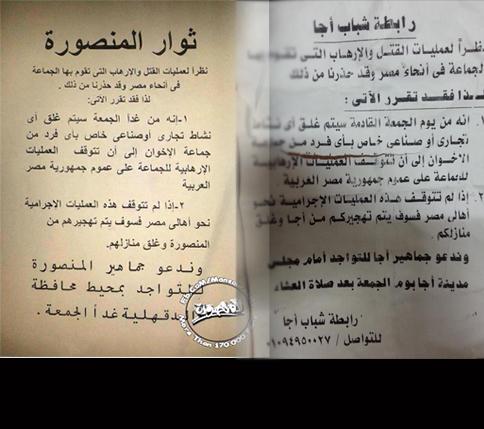 ثوار المنصورة
نظراً لعمليات القتل والإرهاب التى تقوم بها الجماعة
فى أنحاء مصر وقد حذرنا من ذلك .
لذا فقد تقرر الآتى:
١-إنه من غداً الجمعة سيتم غلق أى
نشاط تجارى أوصناعى خاص بأى فرد من
جماعة الإخوان إلى أن تتوقف العمليات
الإرهابية للجماعة على عموم جمهورية مصر
العربية
٢-إذا لم تتوقف هذه العمليات الإجرامية
نحو أهالى مصر فسوف يتم تهجيرهم من
المنصورة وغلق منازلهم.
وندعو جماهير المنصورة
للتواجد بمحيط محافظة
الدقهلية غداً الجمعة.
رابطة شباب أجا
نظراً لعمليات القتل والإرهاب التى تقوم بها
الجماعة فى أنحاء مصر وقد حذرنا من ذلك
لذا فقد تقرر الآتى :
١. انه من يوم الجمعة القادمة سيتم غلق أى نشاط
تجارى أو صناعى خاص بأى فرد من جماعة
الاخوان إلى أن تتوقف العمليات الإرهابية
للجماعة على عموم جمهورية مصر العربية
٢. إذا لم تتوقف هذه العمليات الإجرامية نحو
أهالى مصر فسوف يتم تهجيركم من أجا وغلق
منازلكم .
وندعو جماهير أجا للتواجد أمام مجلس
مدينة أجا يوم الجمعة بعد صلاة العشاء
رابطة شباب أجا
للتواصل / ٠١٠٩٤٩٥٠٠٢٧
More Than 170 000